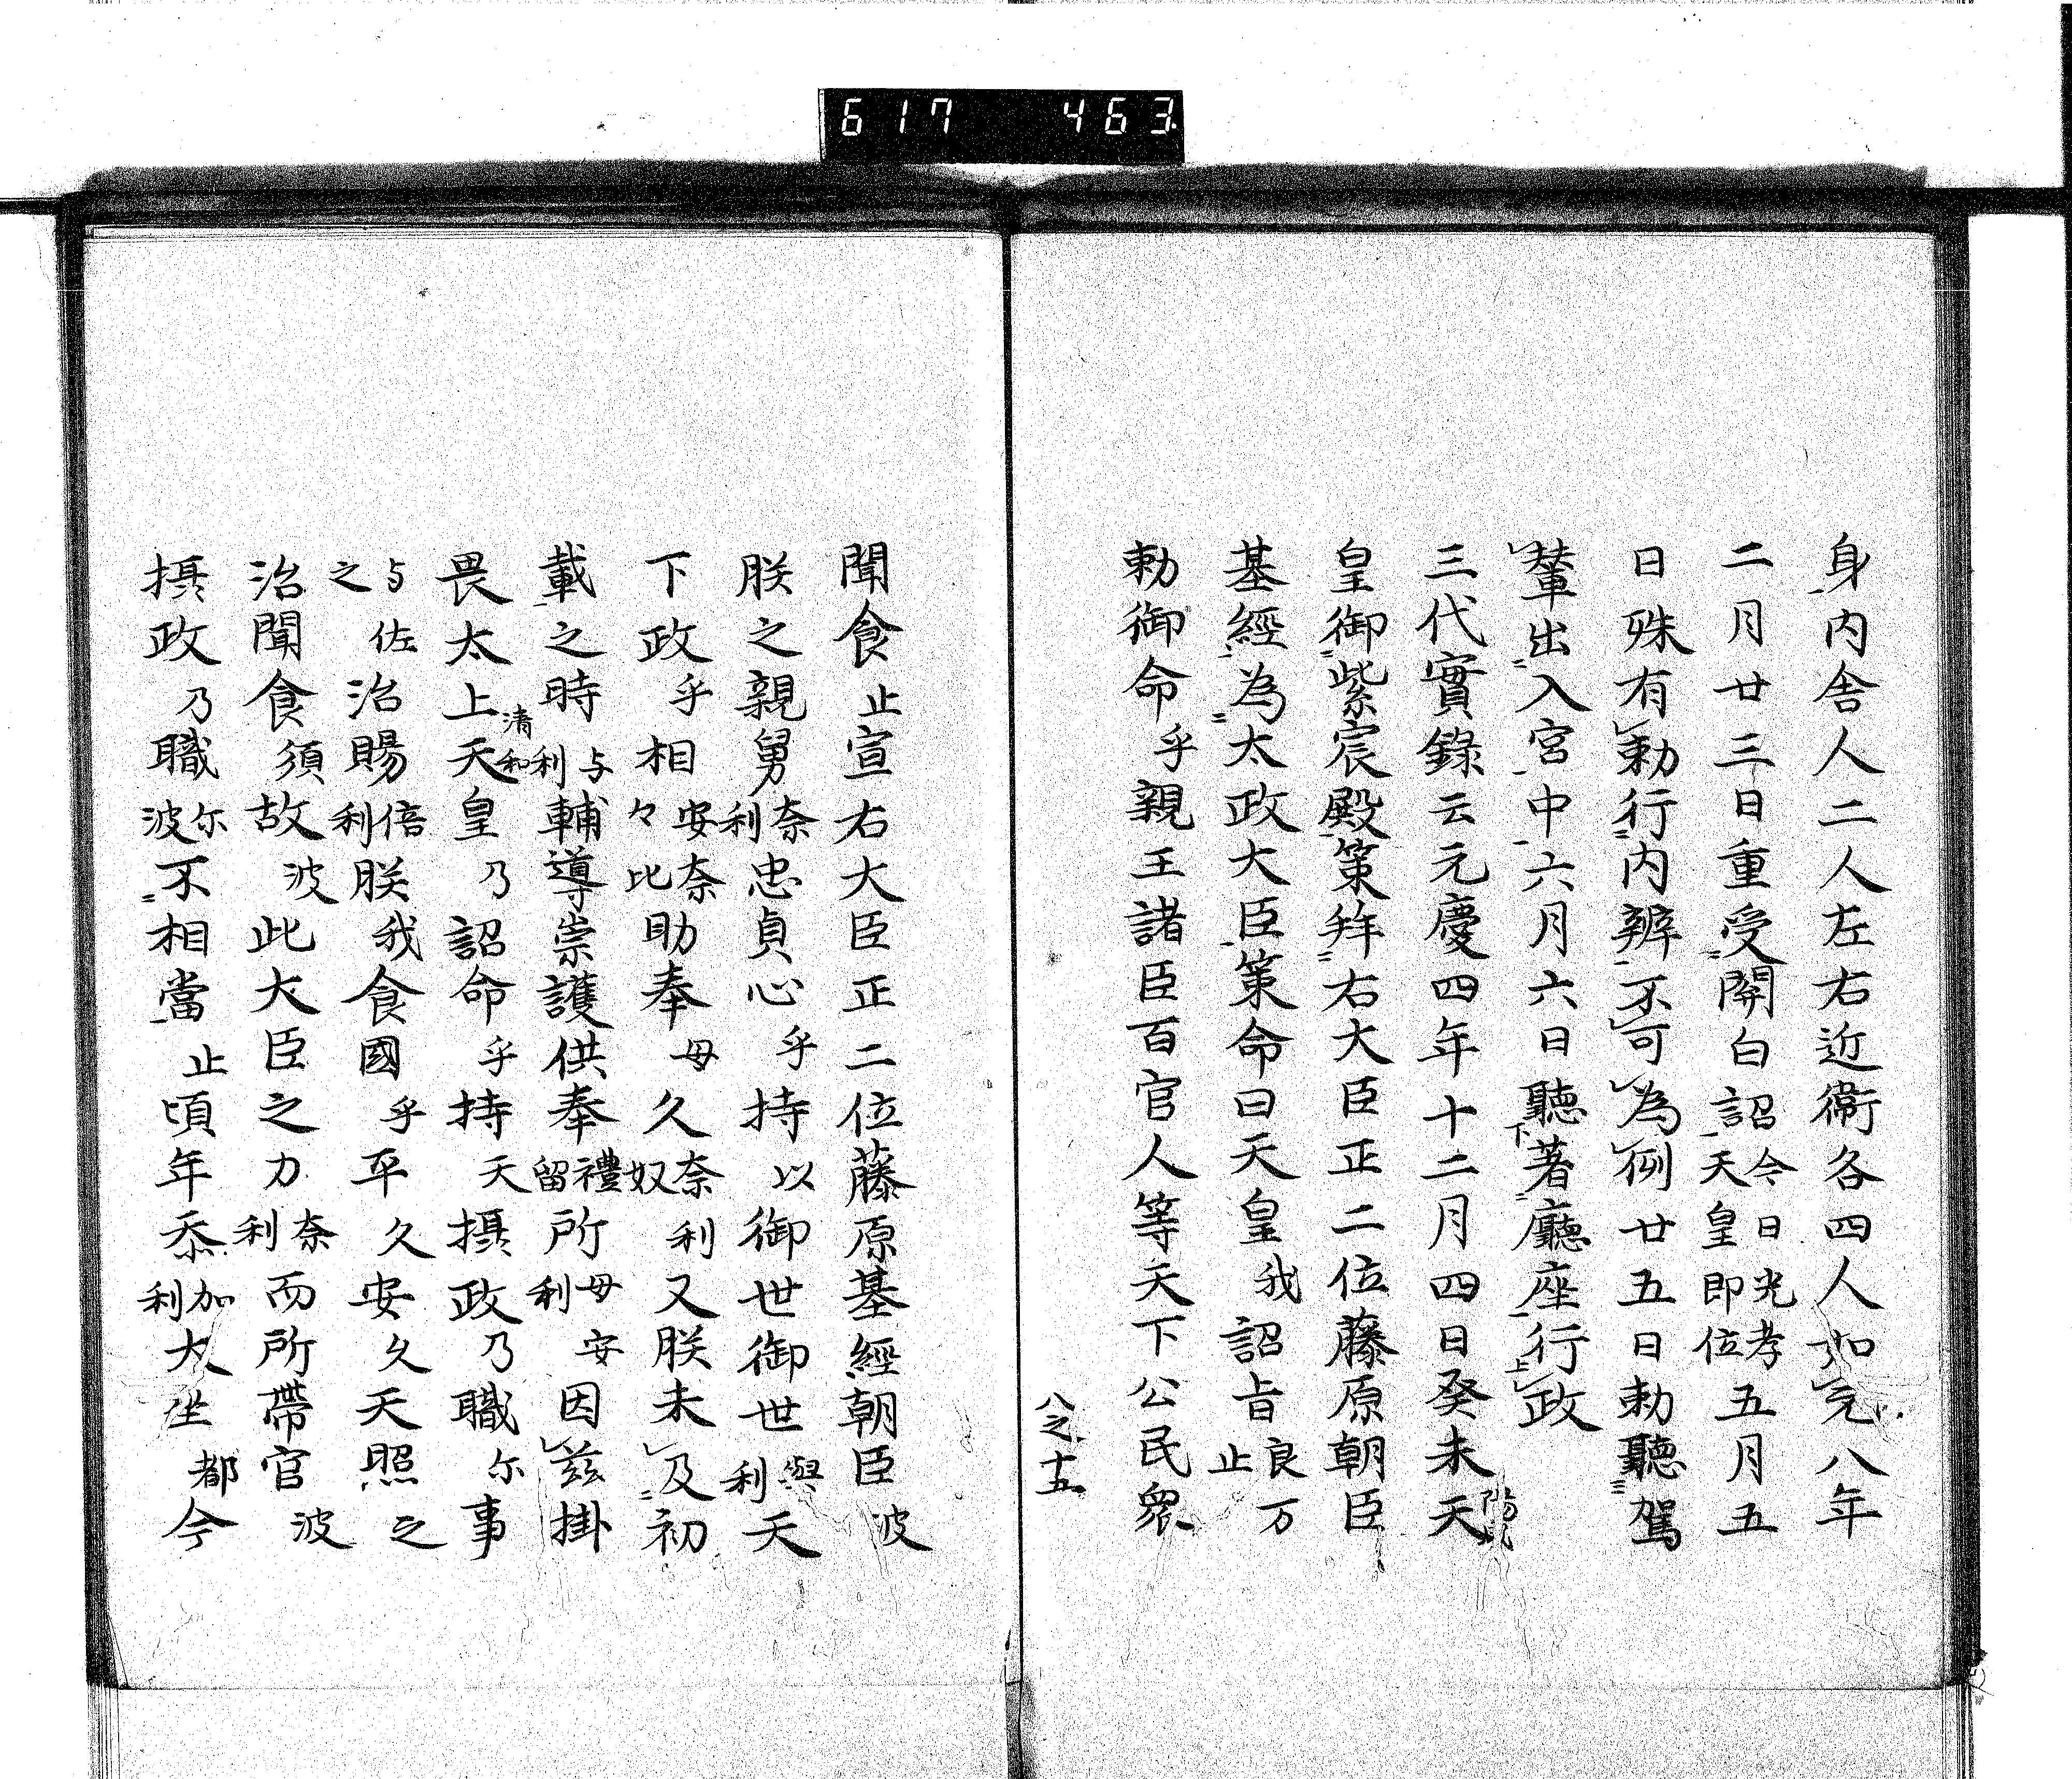 617 463
身内舎人二人左右近衛各四人如元八年
二月廿三日重受關白詔今日光孝天皇即位五月五
日殊有勅行内辨不可為例廿五日勅聽駕
輦出入宮中六月六日聽著廳座行政
三代實錄云元慶四年十二月四日癸未天陽成
皇御紫宸殿策拜右大臣正二位藤原朝臣
基經為太政大臣策命曰天皇我詔旨良止万
勅御命乎親王諸臣百官人等天下公民衆
八之十五
聞食止宣右大臣正二位藤原基經朝臣波
朕之親舅奈利忠貞心乎持以御世御世與利天
下政乎相安奈々比助奉母久奈利奴又朕未及初
載之時与利輔導崇護供奉禮留所母安利因茲掛
畏太上天皇清和乃詔命乎持天攝政乃職尓事
之与佐治賜倍利朕我食國乎平久安久天照之
治聞食須故波此大臣之力奈利而所帶官波
摂政乃職尓波不相當止頃年忝加利太坐都今